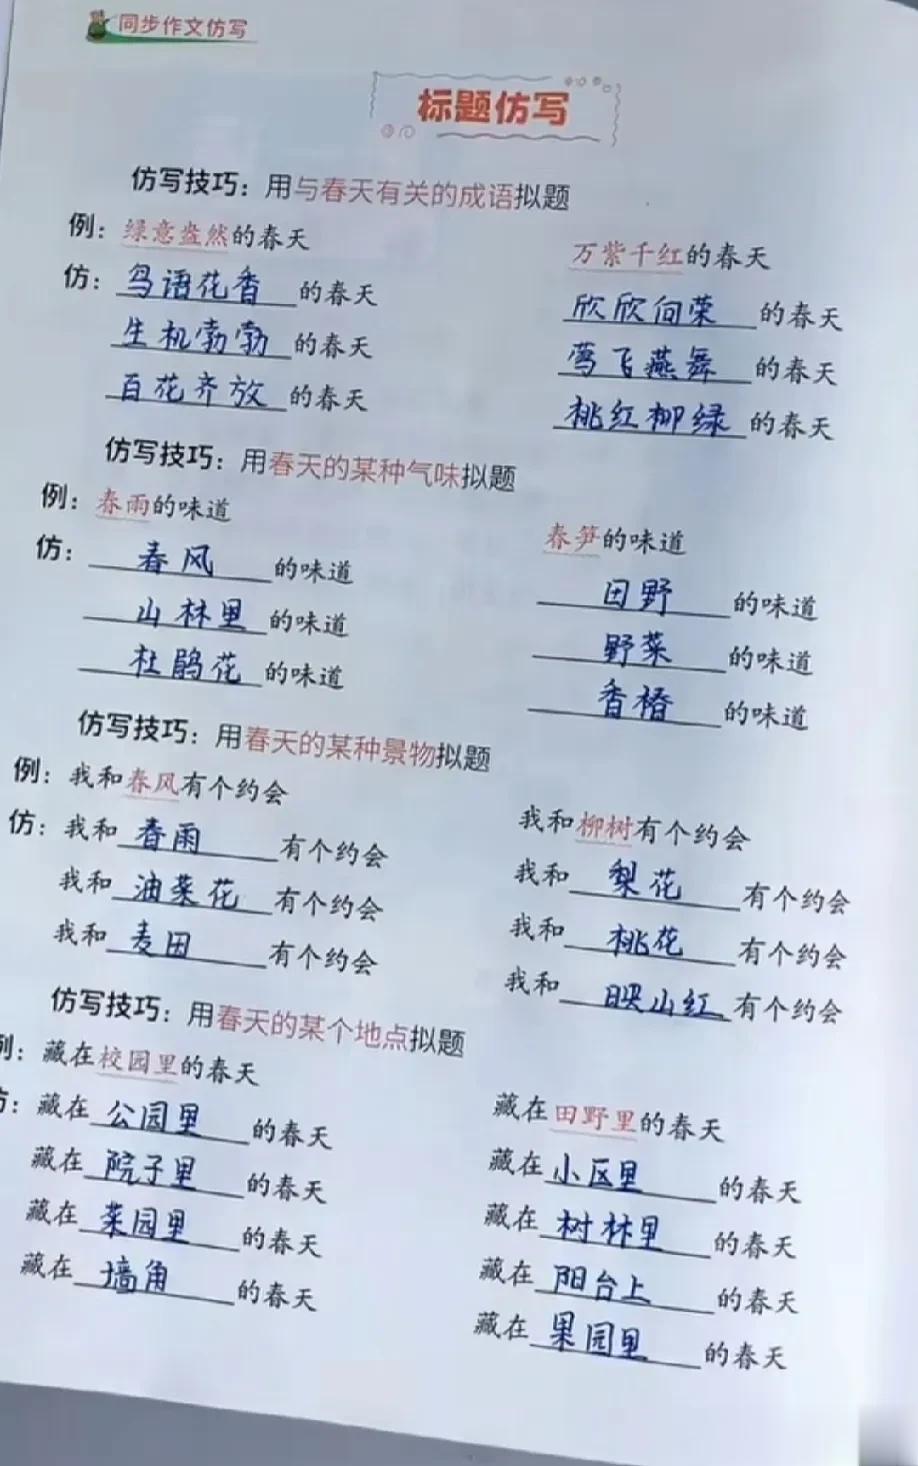 同步作文仿写
标题仿写
仿写技巧：用与春天有关的成语拟题
例：绿意盎然的春天 万紫千红的春天
仿：鸟语花香的春天 欣欣向荣的春天
生机勃勃的春天 莺飞燕舞的春天
百花齐放的春天 桃红柳绿的春天
仿写技巧：用春天的某种气味拟题
例：春雨的味道 春笋的味道
仿：春风的味道 田野的味道
山林里的味道 野菜的味道
杜鹃花的味道 香椿的味道
仿写技巧：用春天的某种景物拟题
例：我和春风有个约会 我和柳树有个约会
仿：我和春雨有个约会 我和梨花有个约会
我和油菜花有个约会 我和桃花有个约会
我和麦田有个约会 我和映山红有个约会
仿写技巧：用春天的某个地点拟题
例：藏在校园里的春天 藏在田野里的春天
仿：藏在公园里的春天 藏在小区里的春天
藏在院子里的春天 藏在树林里的春天
藏在菜园里的春天 藏在阳台上的春天
藏在墙角的春天 藏在果园里的春天